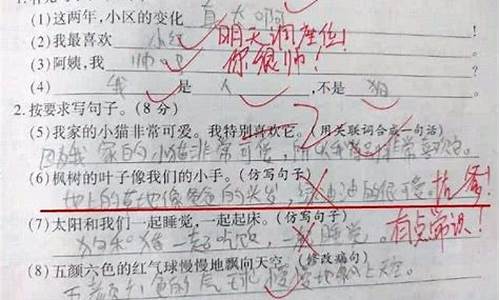 (1)这两年,小区的变化 真大啊
(2)我最喜欢 小红 明天调座位!
(3)阿姨,我 帅吧 你很帅!
(4) 我 是 人 ,不是 狗
2.按要求写句子。(8分)
(5)我家的小猫非常可爱。我特别喜欢它。(用关联词合成一句话)
因为我家的小猫非常可爱,所以我 非常喜欢它。
(6)枫树的叶子像我们的小手。(仿写句子)
地上的草地像爸爸的头发,绿油油的很可爱。
(7)太阳和我们一起睡觉,一起起床。(仿写句子) 有点常识!
狗和猪一起吃饭,一 睡觉。
(8)五颜六色的红气球慢慢地飘向天空。(修改病句)
五颜六色的气球慢慢地飘上天空。